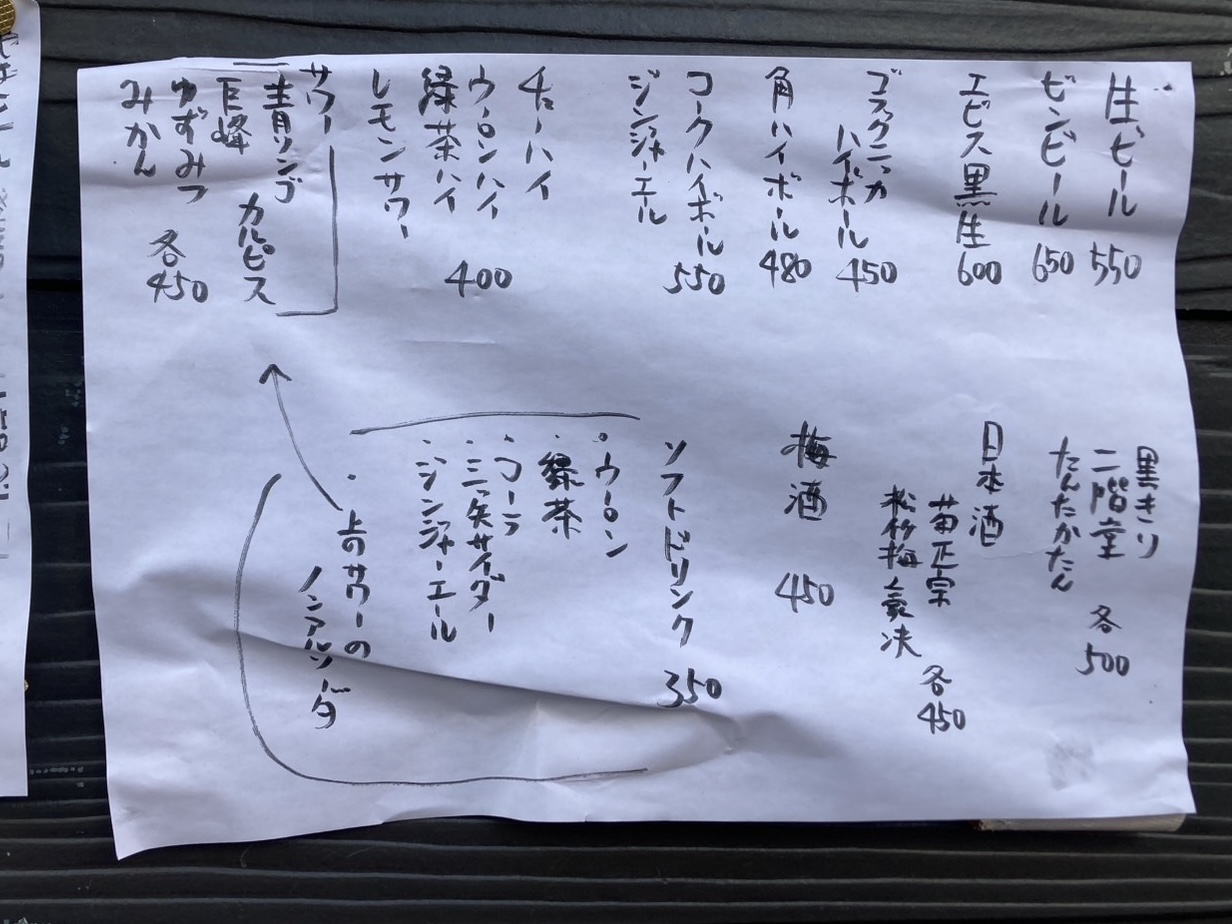 生ビール 550
ビンビール 650
エビス黒生 600
ブラックニッカ
ハイボール 450
角ハイボール 480
コークハイボール 550
ジンジャーエール
チューハイ
ウーロンハイ 400
緑茶ハイ
レモンサワー
サワー
青リンゴ
カルピス
巨峰
ゆずみつ
みかん
各450
黒きり
二階堂
たんたかたん
各500
日本酒
菊正宗
松竹梅豪快
各450
梅酒 450
ソフトドリンク 350
・ウーロン
・緑茶
・コーラ
・三ツ矢サイダー
・ジンジャーエール
・上のサワーの
ノンアルソーダ